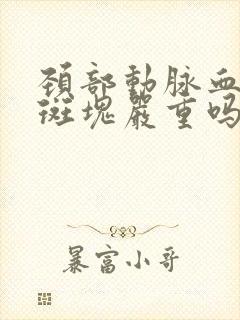 頚部動脉血
斑塊嚴重吗
暴富小哥